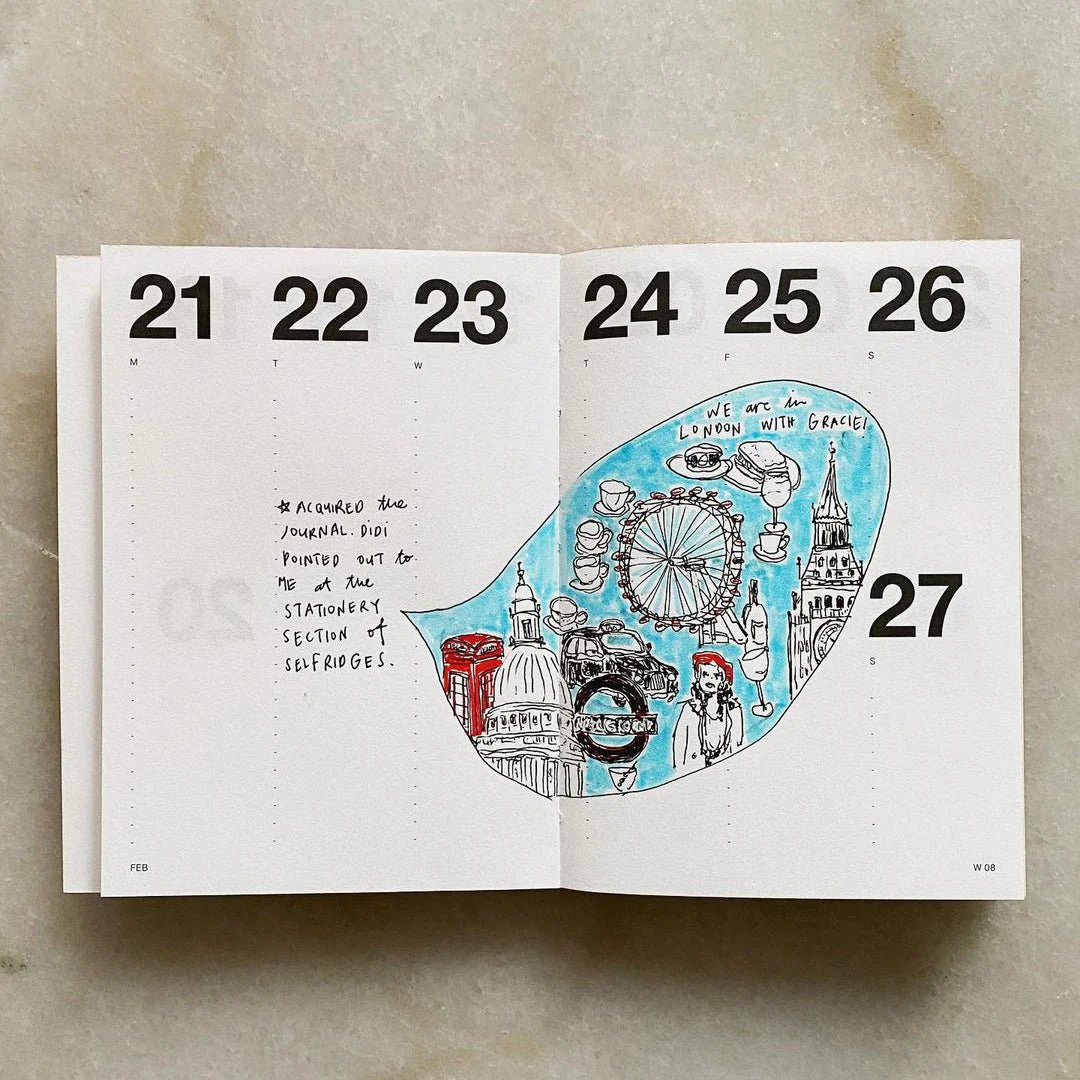 21 22 23 24 25 26
M T W T F S
WE are in
LONDON WITH GRACIE!
☆ ACQUIRED the
JOURNAL. DIDI
POINTED OUT to
ME at the
STATIONERY
SECTION of
SELFRIDGES.
27
S
FEB
W 08